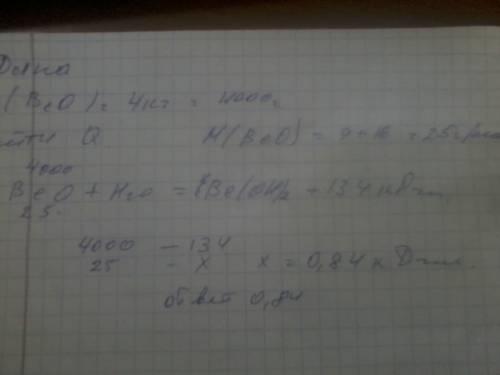 Дано
(BeO) = 4кг = 4000г
Q M(BeO) = 9+16 = 25г/моль
4000
BeO + H2O = Be(OH)2 + 134 кДж
25
4000 — 134
25 — x x = 0,84 кДж.
ответ 0,84